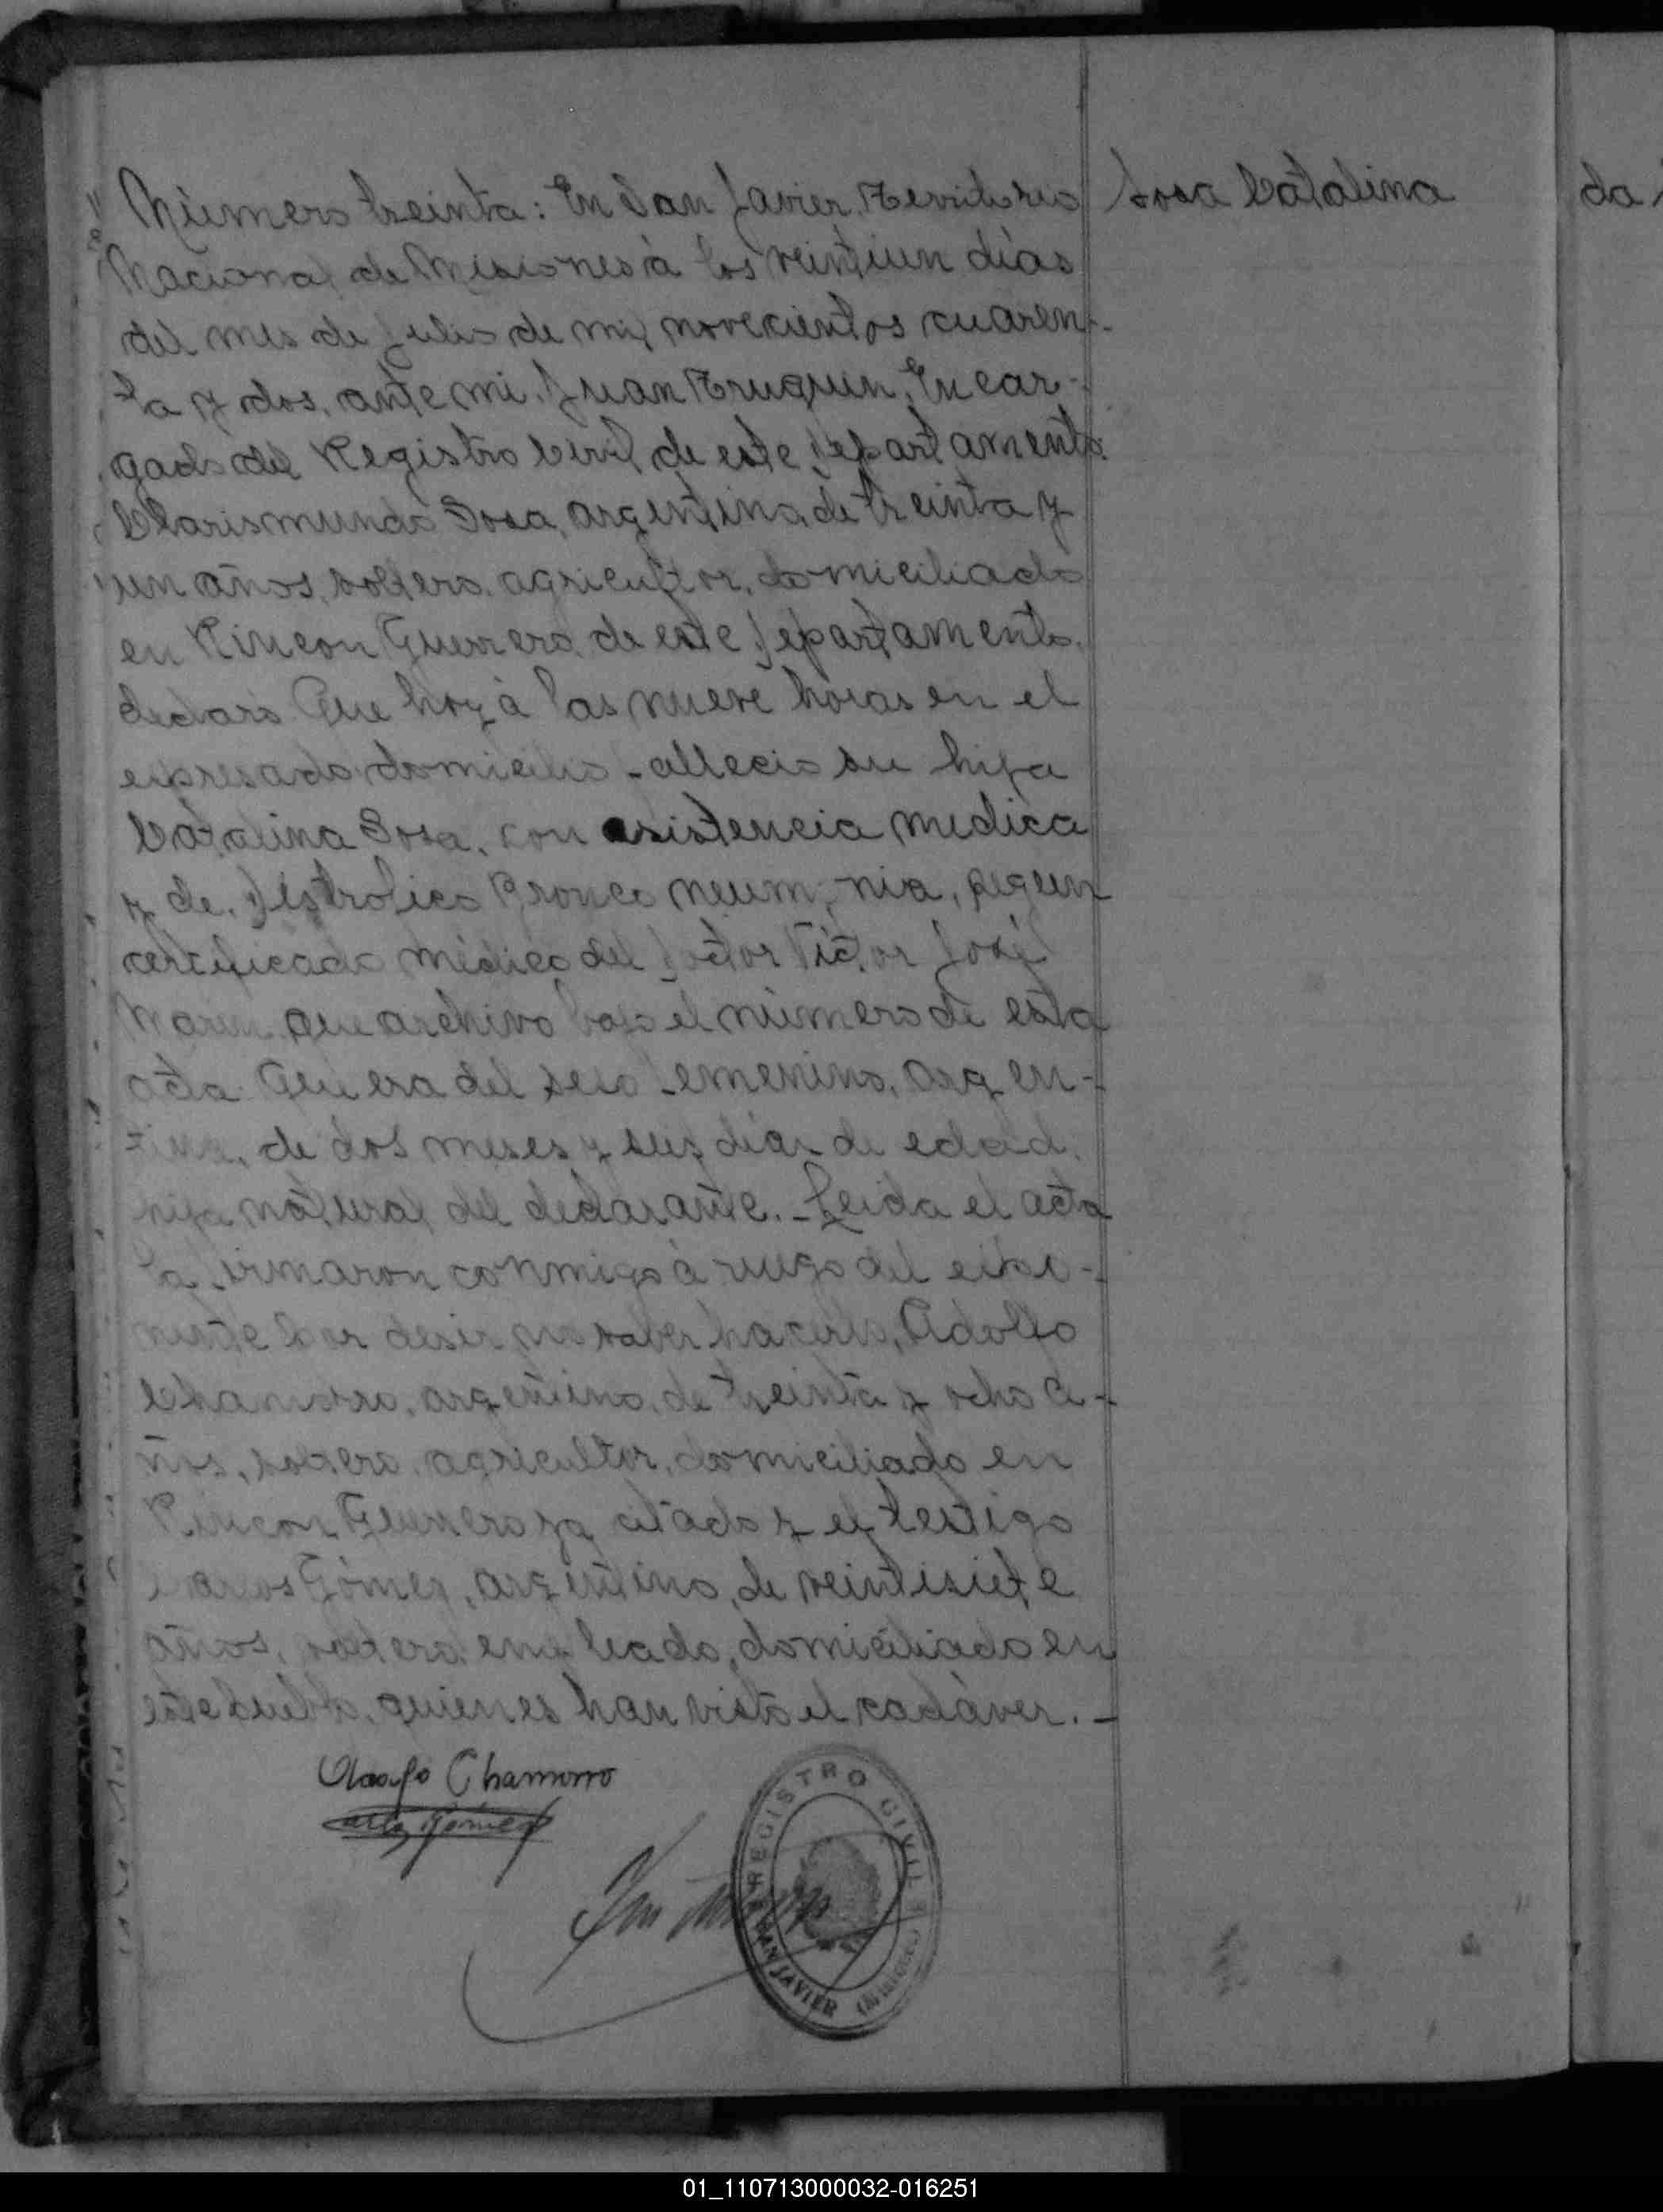 Sosa Catalina
Número treinta: En San Javier, Territorio
Nacional de Misiones à los veintiun días
del mes de Julio de mil novecientos cuaren-
ta y dos, ante mi, Juan Truquin, Encar-
gado del Registro Civil de este Departamento,
Clarismundo Sosa, argentino, de treinta y
un años, soltero, agricultor, domiciliado
en Rincon Guerrero, de este Departamento,
declaró: Que hoy à las nueve horas en el
expresado domicilio fallecio su hija
Catalina Sosa, con asistencia medica
y de, Distrofico Bronco neumonia, segun
certificado médico del Doctor Víctor José
que archivo bajo el número de esta
acta. Que era del sexo femenino, argen-
tina, de dos meses y seis días de edad,
hija natural del declarante.- Leida el acta
la firmaron conmigo à ruego del expo-
nente por desir no saber hacerlo, Adolfo
Chamorro, argentino, de treinta y ocho a-
ños, soltero, agricultor, domiciliado en
Rincon Guerrero ya citado y el testigo
Carlos Gómez, argentino, de veintisiete
años, soltero, empleado, domiciliado en
este pueblo, quienes han visto el cadáver.-
Adolfo Chamorro
Carlos Gómez
REGISTRO CIVIL
SAN JAVIER (MISIONES)
01_110713000032-016251